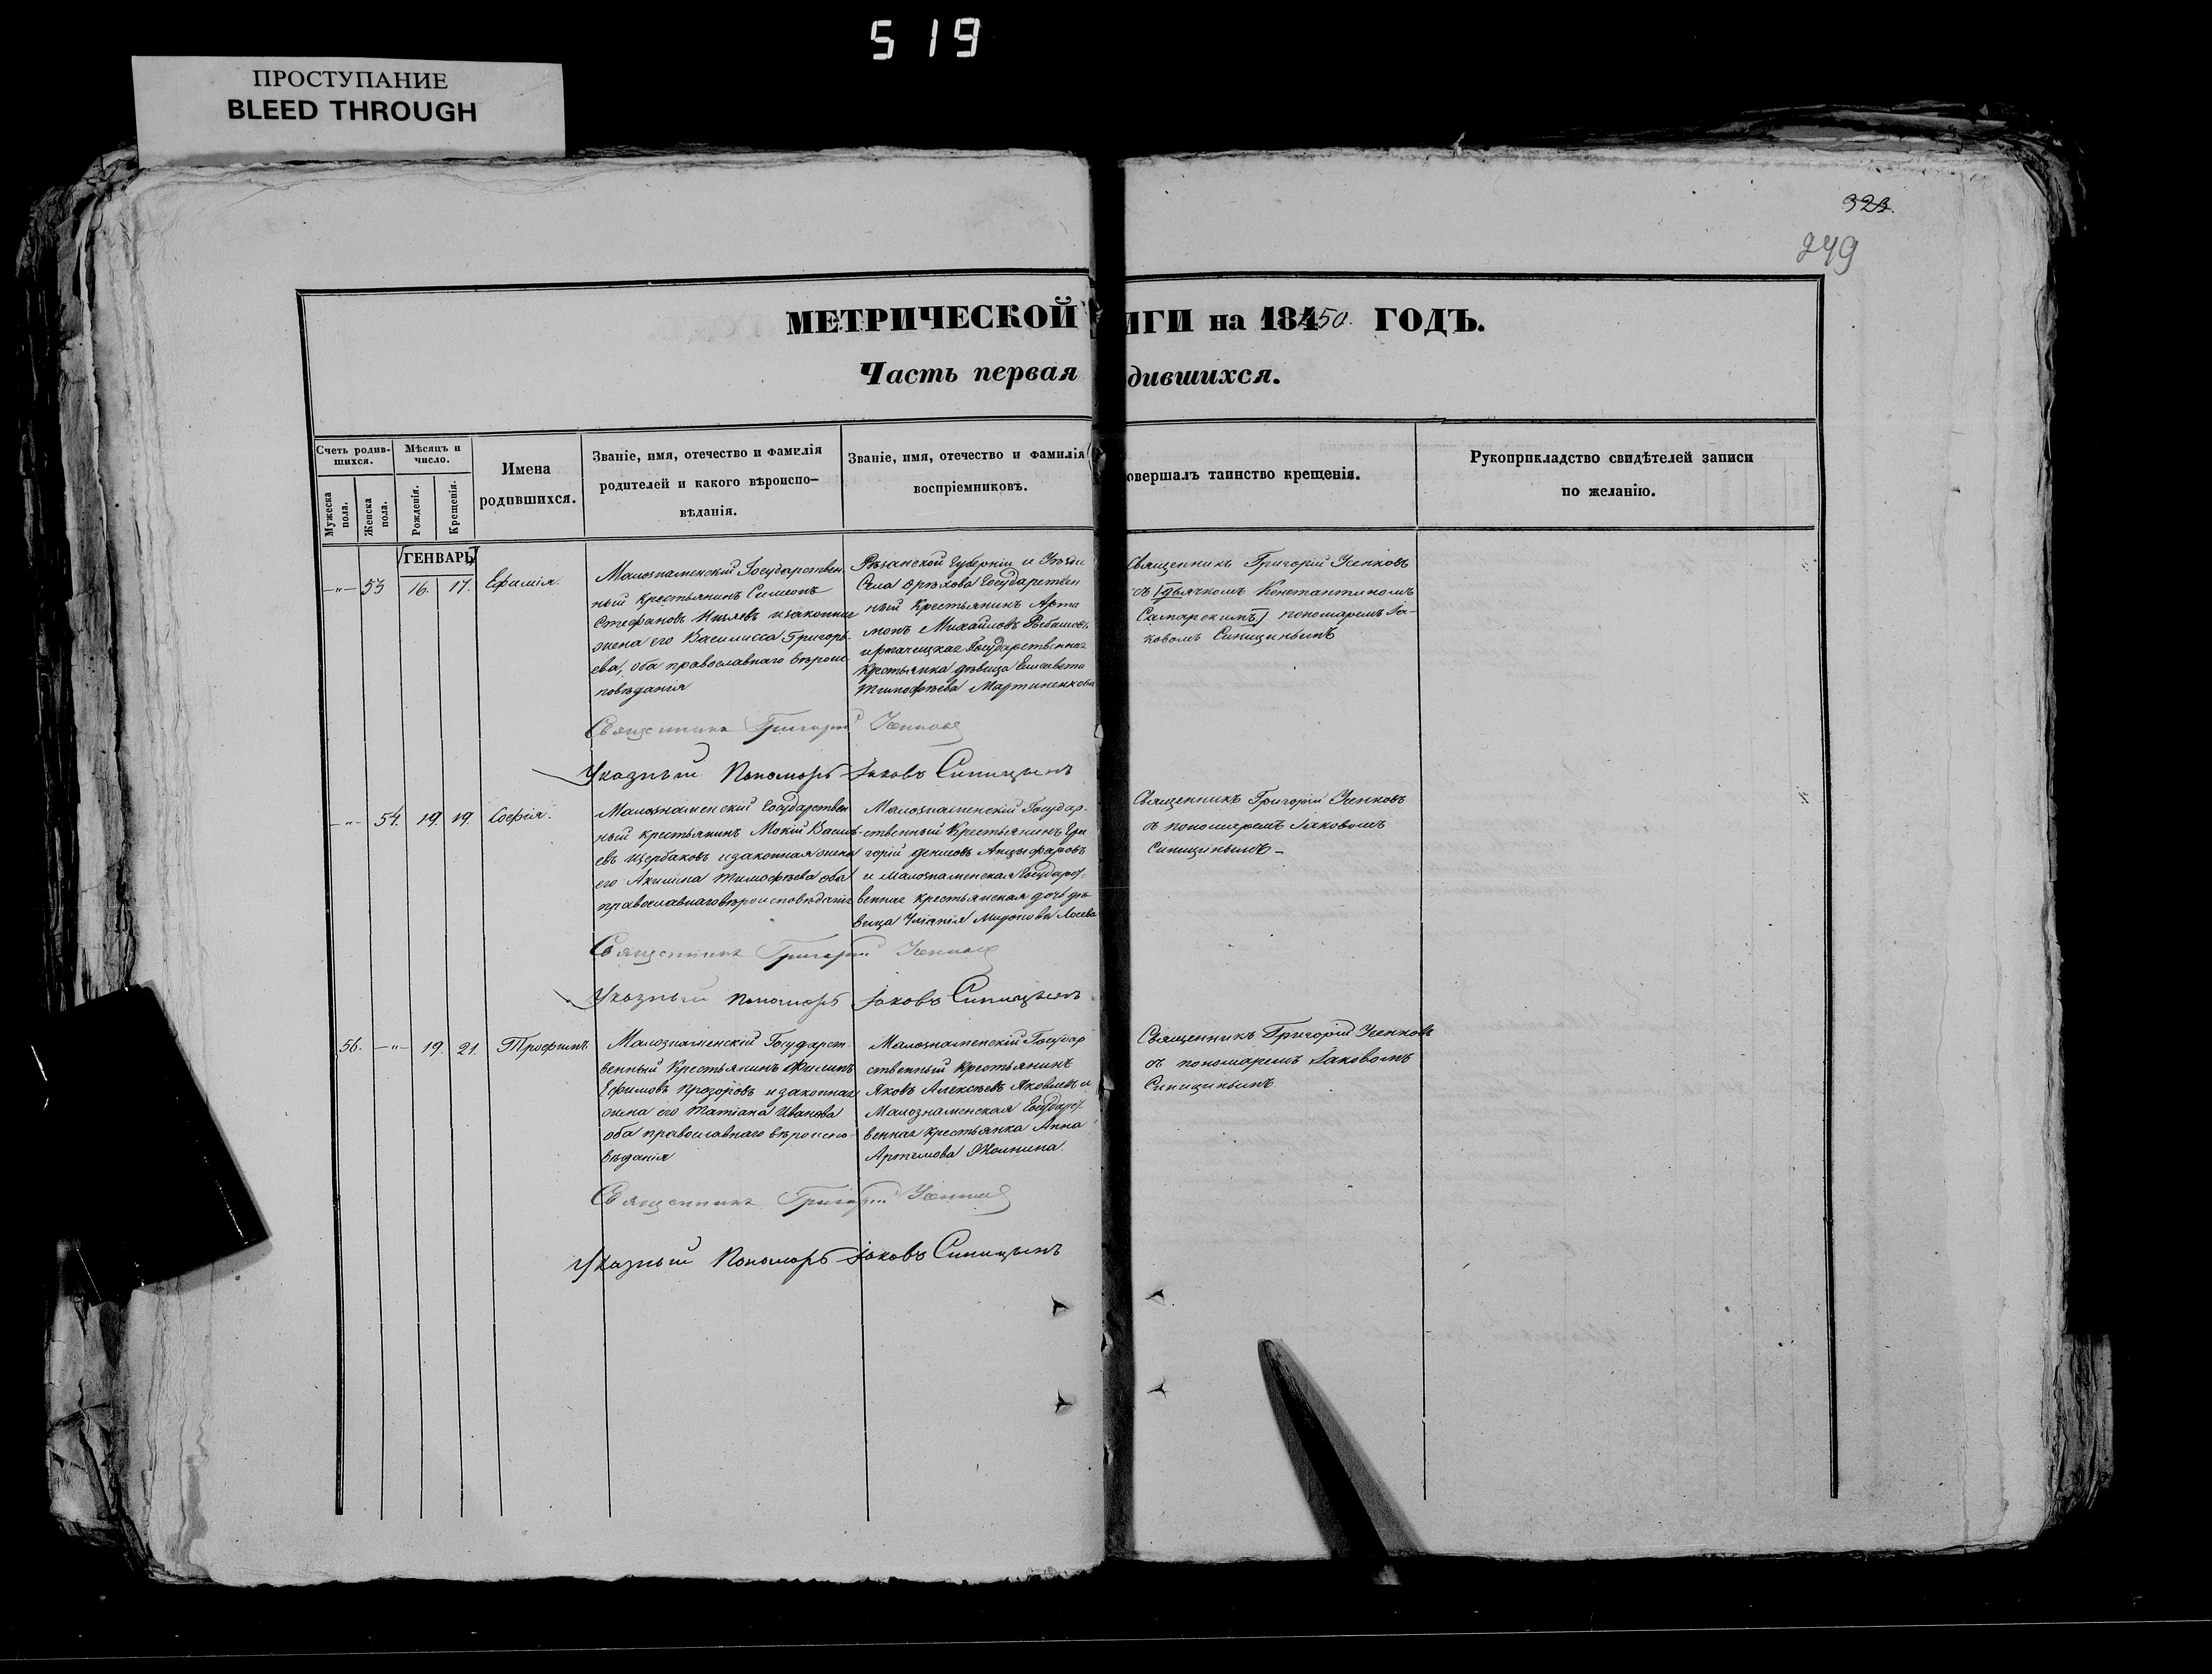 519
ПРОСТУПАНИЕ
BLEED THROUGH
323.
249
МЕТРИЧЕСКОЙ ИГИ на 184 50. ГОДЪ.
Часть первая дившихся.
Счетъ родив-
шихся.
Мужеска
пола.
Женска
пола.
Мѣсяцъ и
число.
Рожденія.
Крещенія.
Имена
родившихся.
Званіе, имя, отечество и фамилія
родителей и какого вѣроиспо-
вѣданія.
Званіе, имя, отечество и фамилія
воспріемниковъ.
овершалъ таинство крещенія.
Рукоприкладство свидѣтелей записи
по желанію.
ГЕНВАРЬ
—"— 53 16. 17. Ефимія.
Малознаменскій Государствен
ный крестьянинъ Симеонъ
Стефановъ и законная
жена его Василисса Григорь
ева, оба православнаго вѣроис
повѣданія
Рязанской Губерніи и Уѣзда
Села Орѣхова Государствен
ный Крестьянинъ Арта
монъ Михайловъ
Государственная
Крестьянка дѣвица Елисавета
Тимофѣева Мартиненкова
Священникъ Григорій Усенковъ
съ дьячкомъ Константиномъ
Самарскимъ пономаремъ Іа-
ковомъ Синицинымъ
Священникъ Григорій Усенковъ
Указный Пономарь Іаковъ Синицынъ
—"— 54. 19. 19. Софія.
Малознаменскій Государствен
ный крестьянинъ Мокій Василь
евъ Щербаковъ и законная жена
его Акилина Тимофѣева оба
православнаго вѣроисповѣданія
Малознаменскій Государ-
ственный Крестьянинъ Гри
горій Денисовъ Анцыфаровъ
и Малознаменская Государст-
венная крестьянская дочь дѣ
вица Уліанія Миронова Лосева
Священникъ Григорій Усенковъ
съ пономаремъ Іаковомъ
Синицинымъ –
Священникъ Григорій Усенковъ
Указный пономарь Іаковъ Синицынъ
56. —"— 19. 21. Трофимъ
Малознаменскій Государст-
венный Крестьянинъ Филипъ
Ефимовъ Прозоровъ и законная
жена его Татіана Иванова
оба православнаго вѣроиспо-
вѣданія
Малознаменскій Государ
ственный Крестьянинъ
Яковъ Алексѣевъ Яковлевъ и
Малознаменская Государст-
венная крестьянка Анна
Артемова
Священникъ Григорій Усенковъ
съ пономаремъ Іаковомъ
Синицинымъ.
Священникъ Григорій Усенковъ
Указный Пономарь Іаковъ Синицынъ